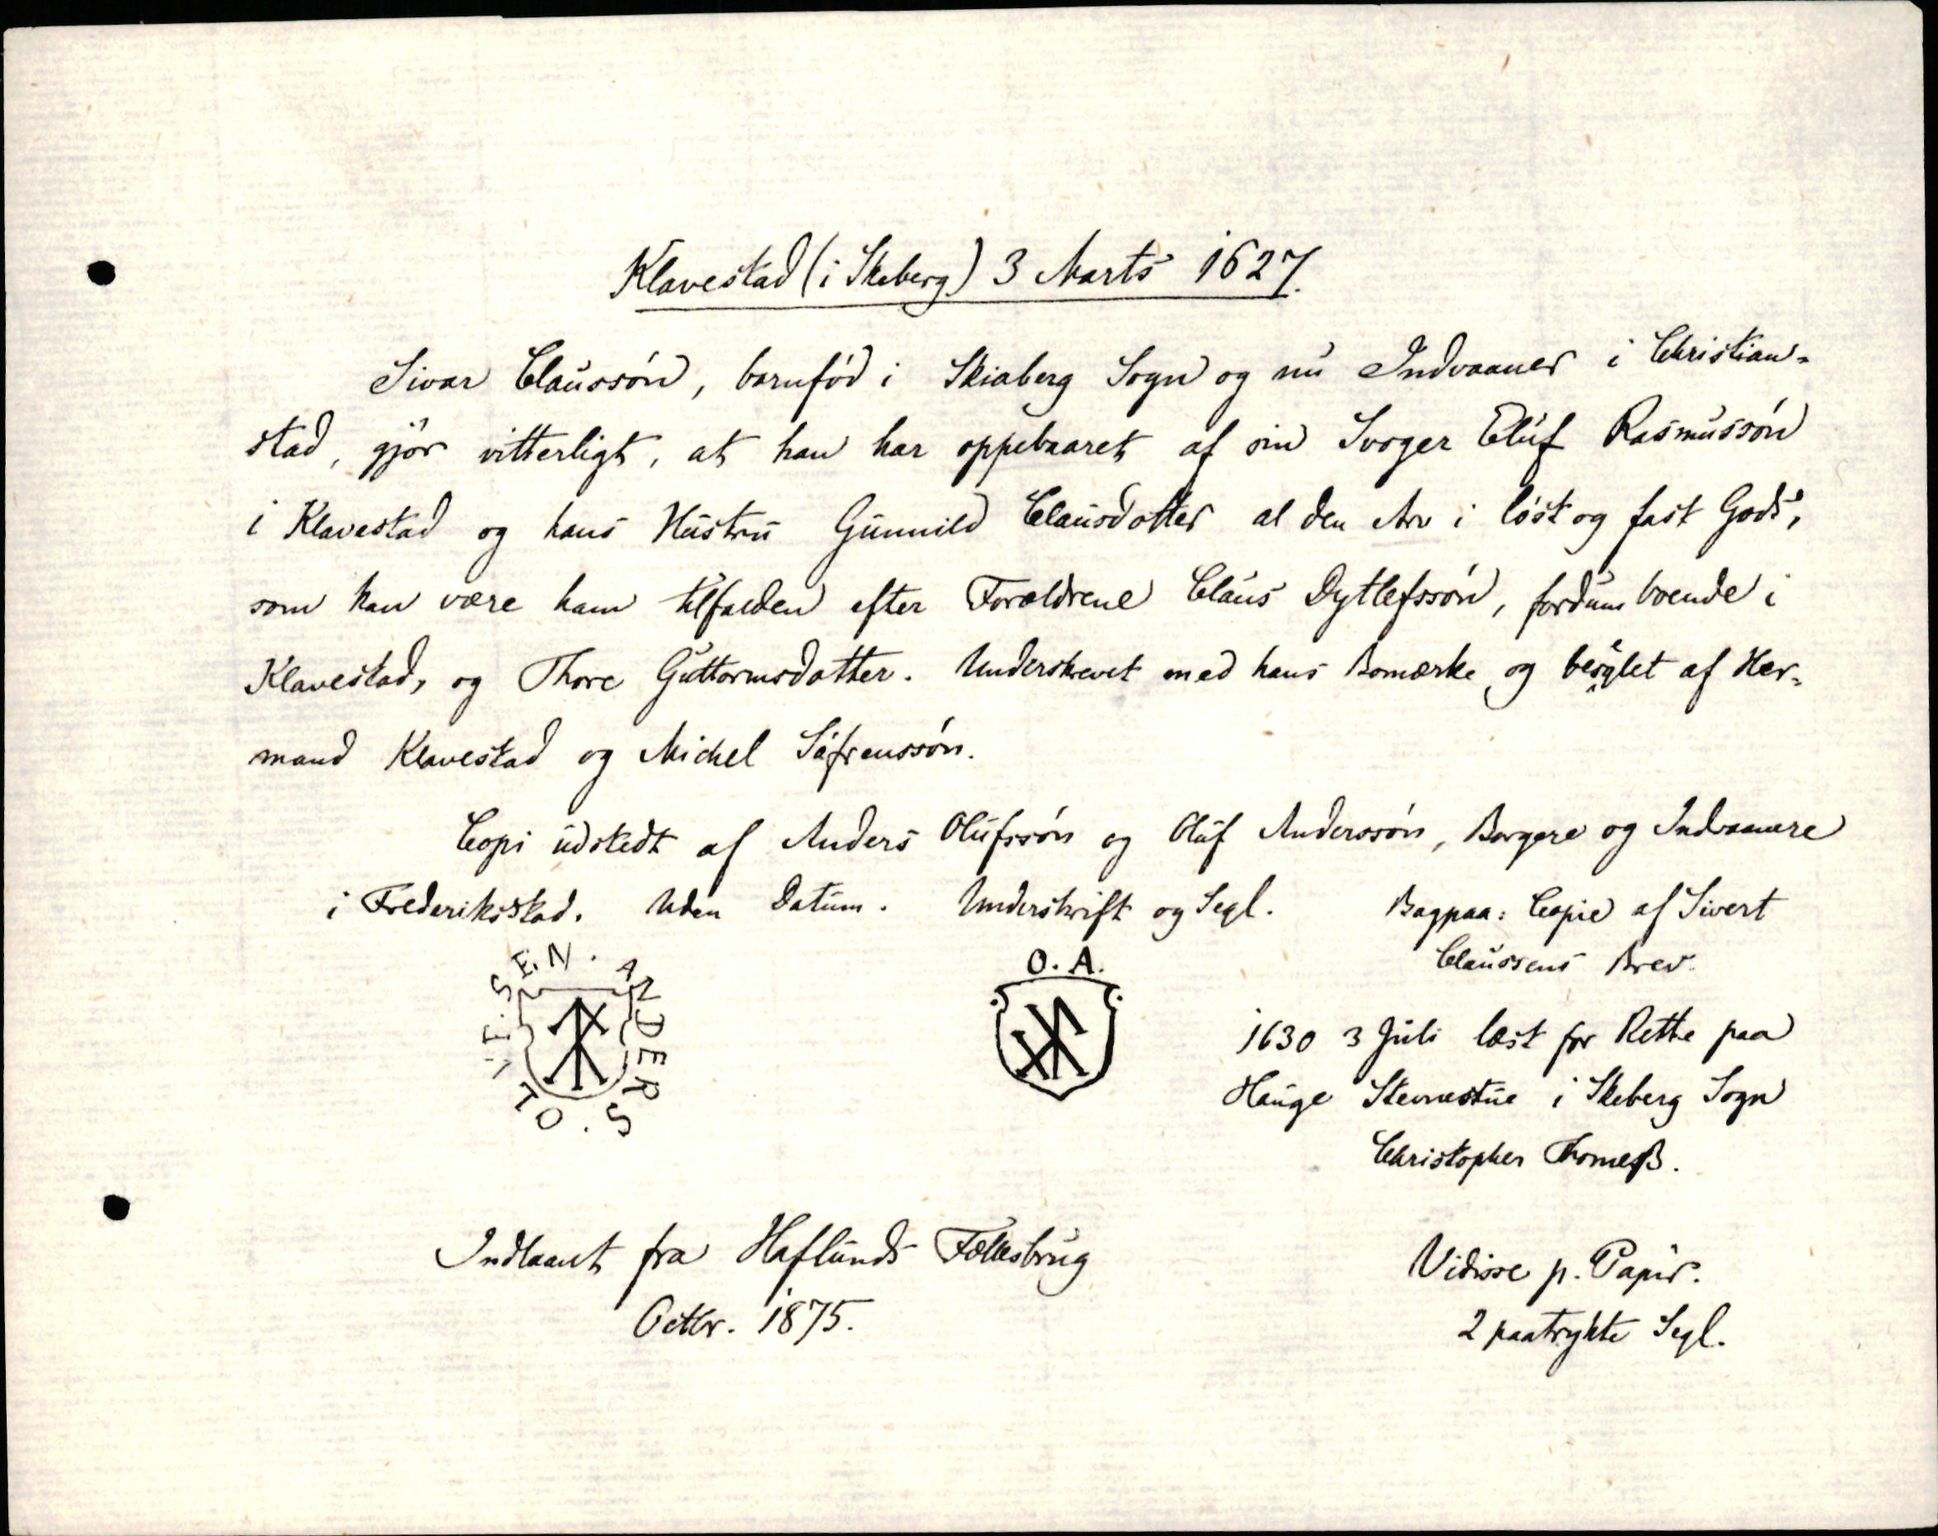 Klavestad (i Skeberg) 3 Marts 1627.
Sivar Claussøn, barnfød i Skiaberg Sogn og nu Indvaaner i Christian-
stad, gjør vitterligt, at han har oppebaaret af sin Svoger Eluf Rasmussøn
i Klavestad og hans Hustru Gunnild Clausdotter al den Arv i løst og fast Gods,
som kan være ham tilfalden efter Forældrene Claus Dytlefssøn, fordum boende i
Klavestad, og Thore Guttormsdatter. Underskrevet med hans Bomærke og beseglet af Her-
mand Klavestad og Michel Safrenssøn.
Copi udstedt af Anders Olufssøn og Oluf Anderssøn, Borgere og Indvaanere
i Frederiksstad. Uden Datum. Underskrift og Segl.
Bagpaa: Copie af Sivert
Claussens Brev.
ANDERS . OLVFSEN .
O. A.
1630 3 Juli læst for Rette paa
Hauge Stevnestue i Skeberg Sogn
Christopher Thomesß.
Indlaant fra Haflunds Fællesbrug
Octbr. 1875.
Vidisse p. Papir.
2 paatrykte Segl.